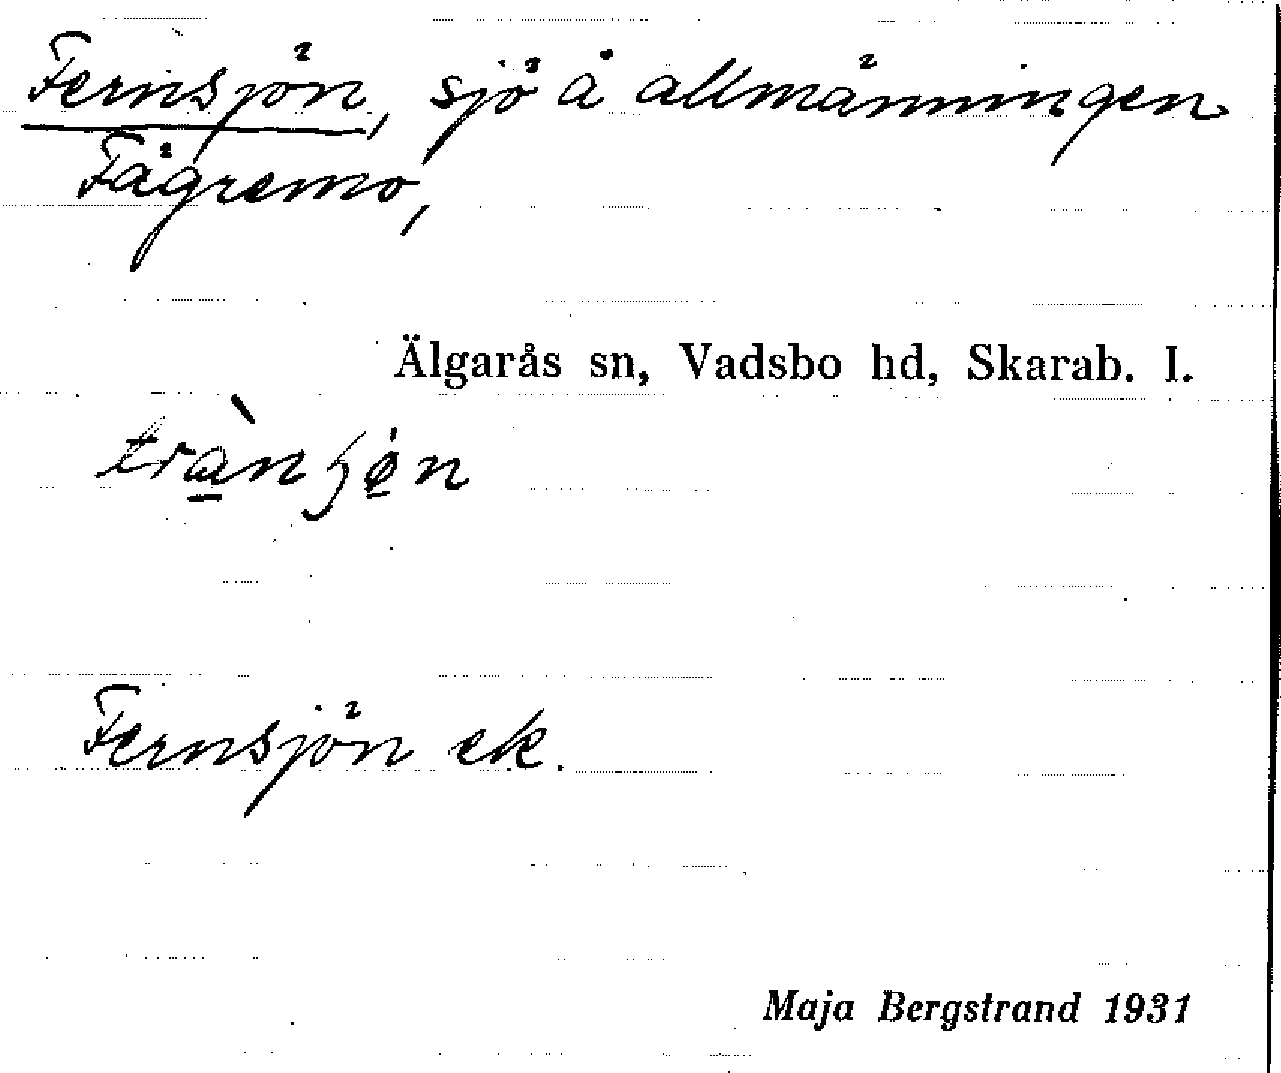 Fernsjön, sjö å allmänningen
Fägremo,
Älgarås sn, Vadsbo hd, Skarab. l.
Fernsjön ek.
Maja Bergstrand 1931